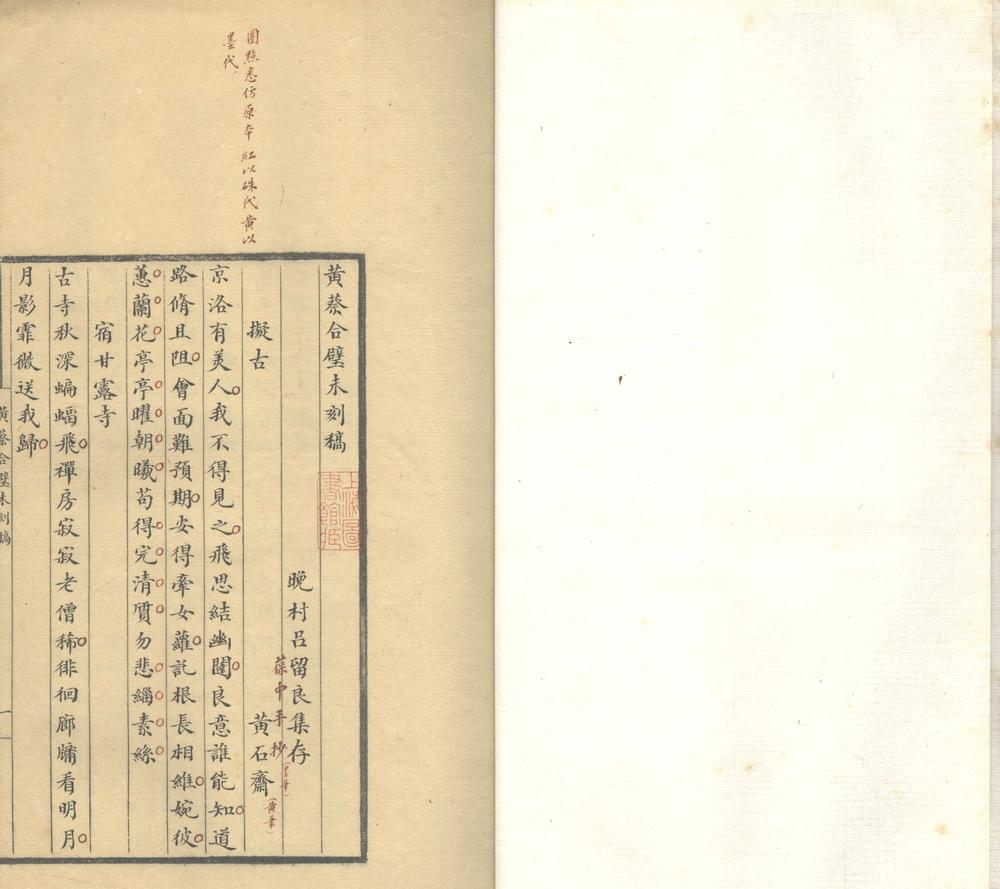 圈點悉仿原本 紅以硃代黃以
墨代
黃蔡合璧未刻稿
晚村呂留良集存
葆中手抄
(墨筆)
擬古
黃石齋
(黃筆)
京洛有美人我不得見之飛思結幽闥良意誰能知道
路脩且阻會面難預期安得牽女蘿託根長相維婉彼
蕙蘭花亭亭曜朝曦苟得完清質勿悲緇素絲
宿甘露寺
古寺秋深蝙蝠飛禪房寂寂老僧稀徘徊廊牖看明月
月影霏微送我歸
黃蔡合璧未刻稿
一
上海圖
書館藏